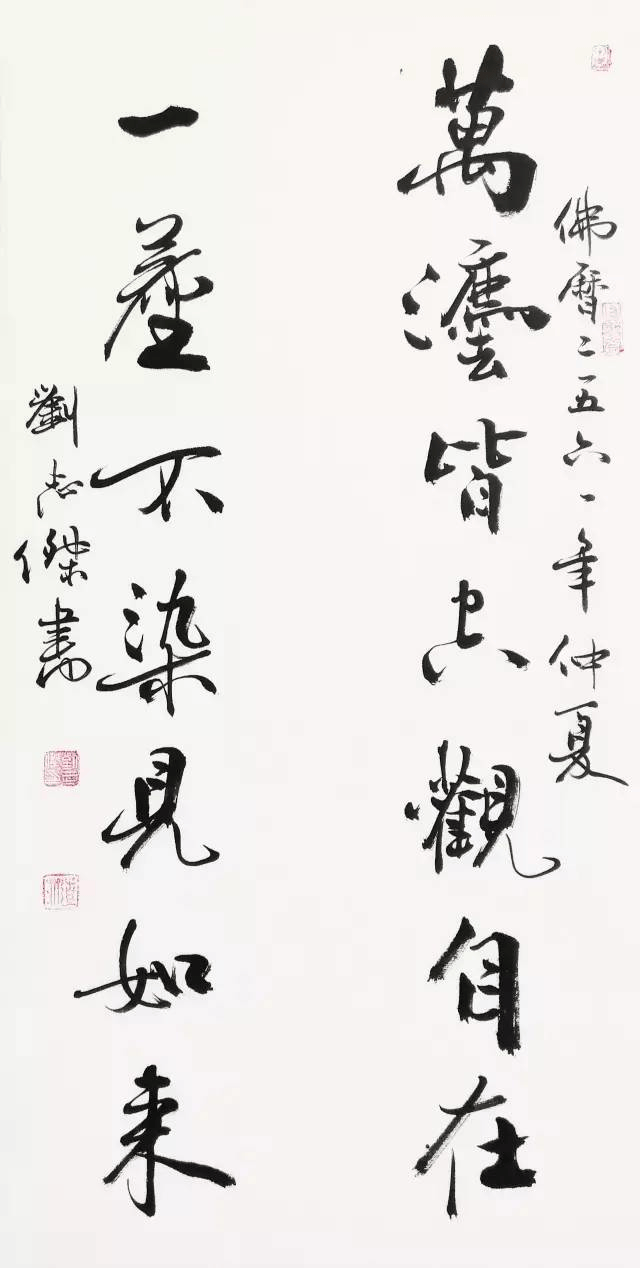 佛曆二五六一年仲夏
萬灋皆空觀自在
一塵不染見如来
劉志傑書